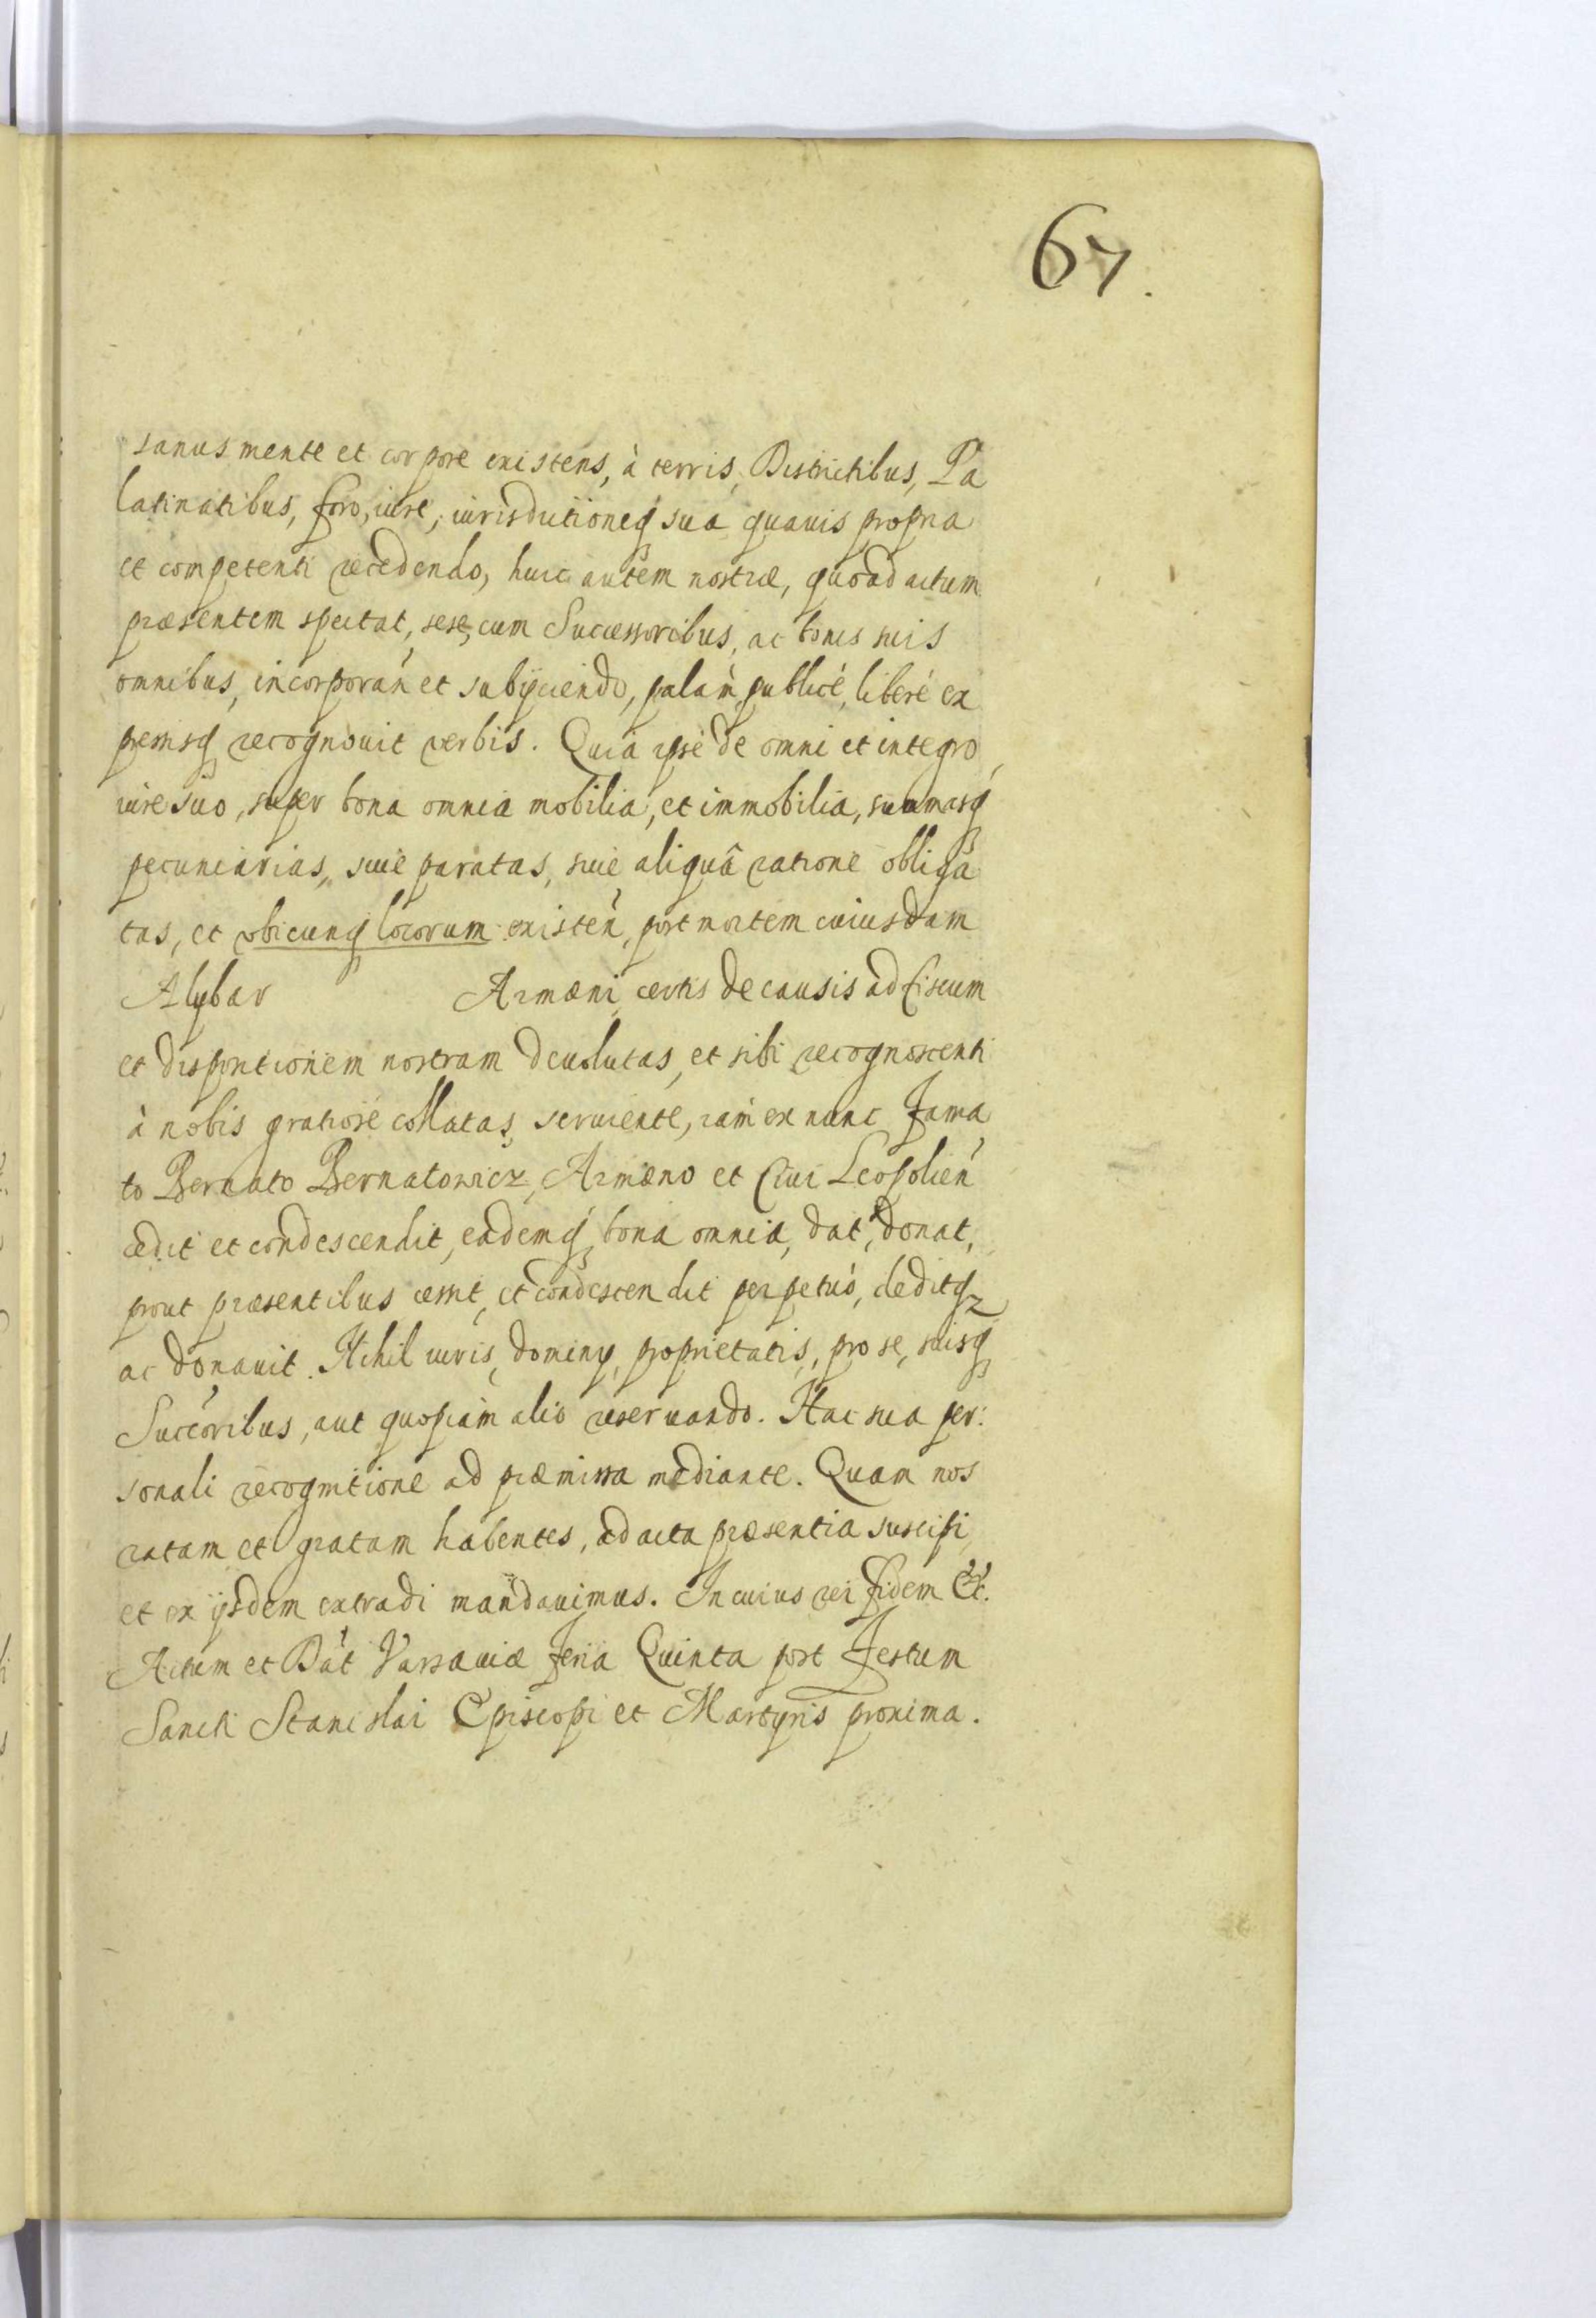 67.
sanus mente et corpore existens, à terris, Districtibus, Pa
latinatibus, foro, iure, iurisdictioneq sua quauis propria
et competenti recedendo, huic autem nostræ, quoad actum
præsentem spectat, sese, cum Successoribus, ac bonis suis
omnibus, incorporań et subijciendo, palàm, publicè, liberè ex
pressisq recognouit verbis. Quia ipse de omni et integro
iure suo, super bona omnia mobilia, et immobilia, summasq
pecuniarias, siue paratas, siue aliquâ ratione obliga
tas, et vbicunq locorum existeń, post mortem cuiusdam
Alybar Armæni, certis de causis ad fiscum
et dispositionem nostram deuolutas, et sibi recognoscenti
à nobis gratiose collatas, seruiente, iam ex nunc Fama
to Bernato Bernatowicz, Armæno et Ciui Leopolień
cedit et condescendit, eademq bona omnia, dat, donat,
prout præsentibus cessit, et condescendit perpetuò, deditqz
ac donauit. Nihil iuris, dominij, proprietatis, pro se, suisq
Succoribus, aut quopiam alio reseruando. Hac sua per:
sonali recognitione ad præmissa mediante. Quam nos
ratam et gratam habentes, ad acta præsentia suscipi,
et ex ijsdem extradi mandauimus. In cuius rei fidem &c.
Actum et Dat Varsauiæ Feria Quinta post Festum
Sancti Stanislai Episcopi et Martyris proxima.